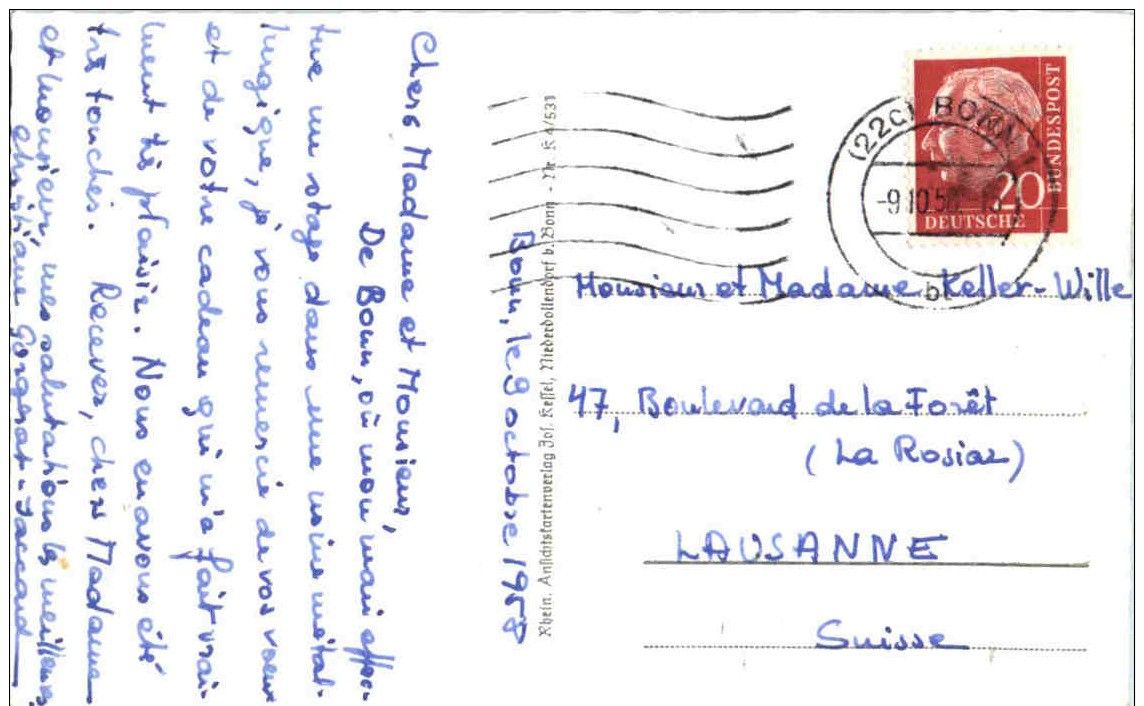 Bonn, le 9 octobre 1958
Chers Madame et Monsieur,
De Bonn, où mon mari effec-
tue un stage dans une usine métal-
lurgique, je vous remercie de vos vœux
et de votre cadeau qui m'a fait vrai-
ment très plaisir. Nous en avons été
très touchés. Recevez, chers Madame
et Monsieur, mes salutations les meilleures
Christiane Gorgerat-Jaccard
Rhein. Ansichtskartenverlag Jos. Kessel, Niederdollendorf b. Bonn - Nr. K 4/531
(22c) BONN
-9.10.58
b
BUNDESPOST
20
DEUTSCHE
Monsieur et Madame Keller-Wille
47, Boulevard de la Forêt
(La Rosiaz)
LAUSANNE
Suisse